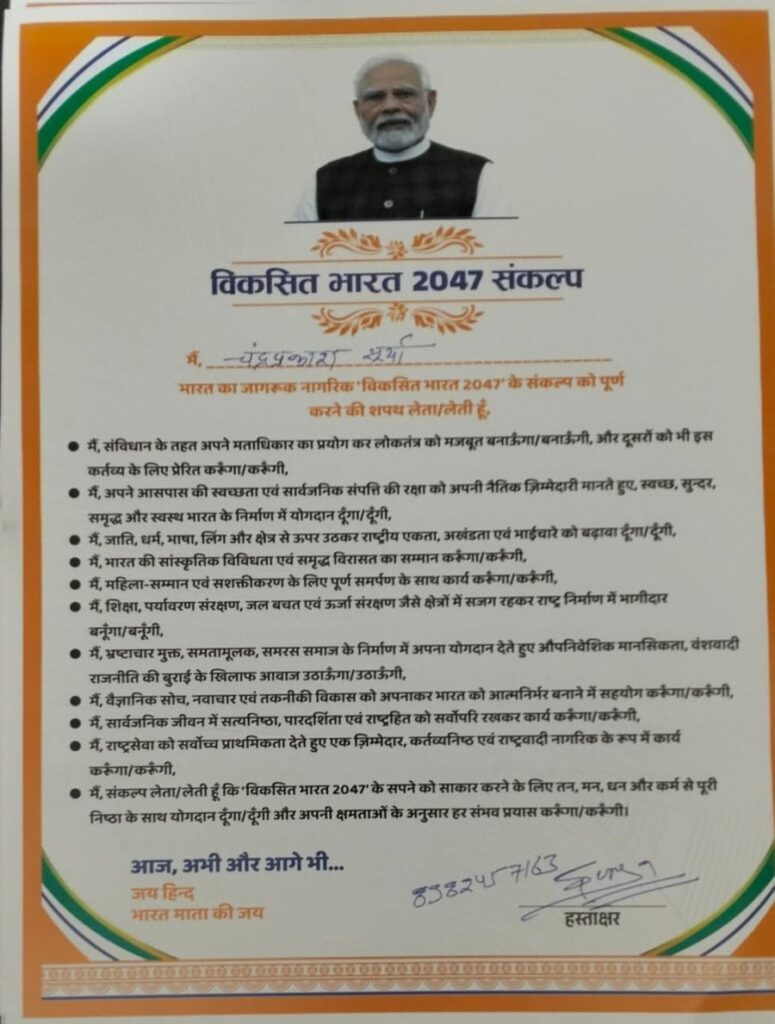 विकसित भारत 2047 संकल्प
मैं, चंद्रप्रकाश सूर्या
भारत का जागरूक नागरिक 'विकसित भारत 2047' के संकल्प को पूर्ण
करने की शपथ लेता/लेती हूँ,
● मैं, संविधान के तहत अपने मताधिकार का प्रयोग कर लोकतंत्र को मजबूत बनाऊँगा/बनाऊँगी, और दूसरों को भी इस
कर्तव्य के लिए प्रेरित करूँगा/करूँगी,
● मैं, अपने आसपास की स्वच्छता एवं सार्वजनिक संपत्ति की रक्षा को अपनी नैतिक ज़िम्मेदारी मानते हुए, स्वच्छ, सुन्दर,
समृद्ध और स्वस्थ भारत के निर्माण में योगदान दूँगा/दूँगी,
● मैं, जाति, धर्म, भाषा, लिंग और क्षेत्र से ऊपर उठकर राष्ट्रीय एकता, अखंडता एवं भाईचारे को बढ़ावा दूँगा/दूँगी,
● मैं, भारत की सांस्कृतिक विविधता एवं समृद्ध विरासत का सम्मान करूँगा/करूँगी,
● मैं, महिला-सम्मान एवं सशक्तीकरण के लिए पूर्ण समर्पण के साथ कार्य करूँगा/करूँगी,
● मैं, शिक्षा, पर्यावरण संरक्षण, जल बचत एवं ऊर्जा संरक्षण जैसे क्षेत्रों में सजग रहकर राष्ट्र निर्माण में भागीदार
बनूँगा/बनूँगी,
● मैं, भ्रष्टाचार मुक्त, समतामूलक, समरस समाज के निर्माण में अपना योगदान देते हुए औपनिवेशिक मानसिकता, वंशवादी
राजनीति की बुराई के खिलाफ आवाज उठाऊँगा/उठाऊँगी,
● मैं, वैज्ञानिक सोच, नवाचार एवं तकनीकी विकास को अपनाकर भारत को आत्मनिर्भर बनाने में सहयोग करूँगा/करूँगी,
● मैं, सार्वजनिक जीवन में सत्यनिष्ठा, पारदर्शिता एवं राष्ट्रहित को सर्वोपरि रखकर कार्य करूँगा/करूँगी,
● मैं, राष्ट्रसेवा को सर्वोच्च प्राथमिकता देते हुए एक ज़िम्मेदार, कर्तव्यनिष्ठ एवं राष्ट्रवादी नागरिक के रूप में कार्य
करूँगा/करूँगी,
● मैं, संकल्प लेता/लेती हूँ कि 'विकसित भारत 2047' के सपने को साकार करने के लिए तन, मन, धन और कर्म से पूरी
निष्ठा के साथ योगदान दूँगा/दूँगी और अपनी क्षमताओं के अनुसार हर संभव प्रयास करूँगा/करूँगी।
आज, अभी और आगे भी...
जय हिन्द
भारत माता की जय
8382457163
हस्ताक्षर